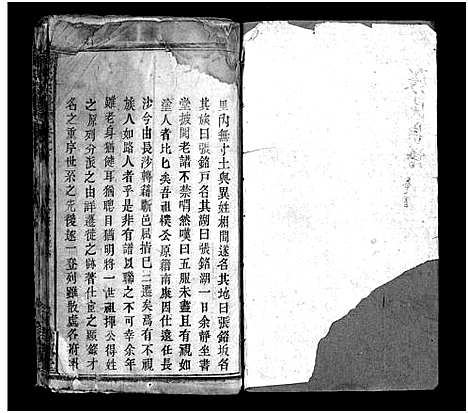 里內無寸土與異姓相間遂名其地曰張銘坂名
其族曰張銘戶名其湖曰張銘湖一日余靜坐書
堂披閱老譜不禁喟然嘆曰五服未盡且有視如
塗人者比比矣吾祖樸公原籍南康因仕遠任長
沙今由長沙轉籍蘄邑屈指已三遷矣焉有不視
族人如路人者乎是非有譜以聯之不可幸余年
雖老身猶健耳猶聰目猶明將一世祖揮公得姓
之原列分派之由詳遷徙之跡著仕宦之顯錄才
名之重序世系之先後遂一一登列雖散處各府州